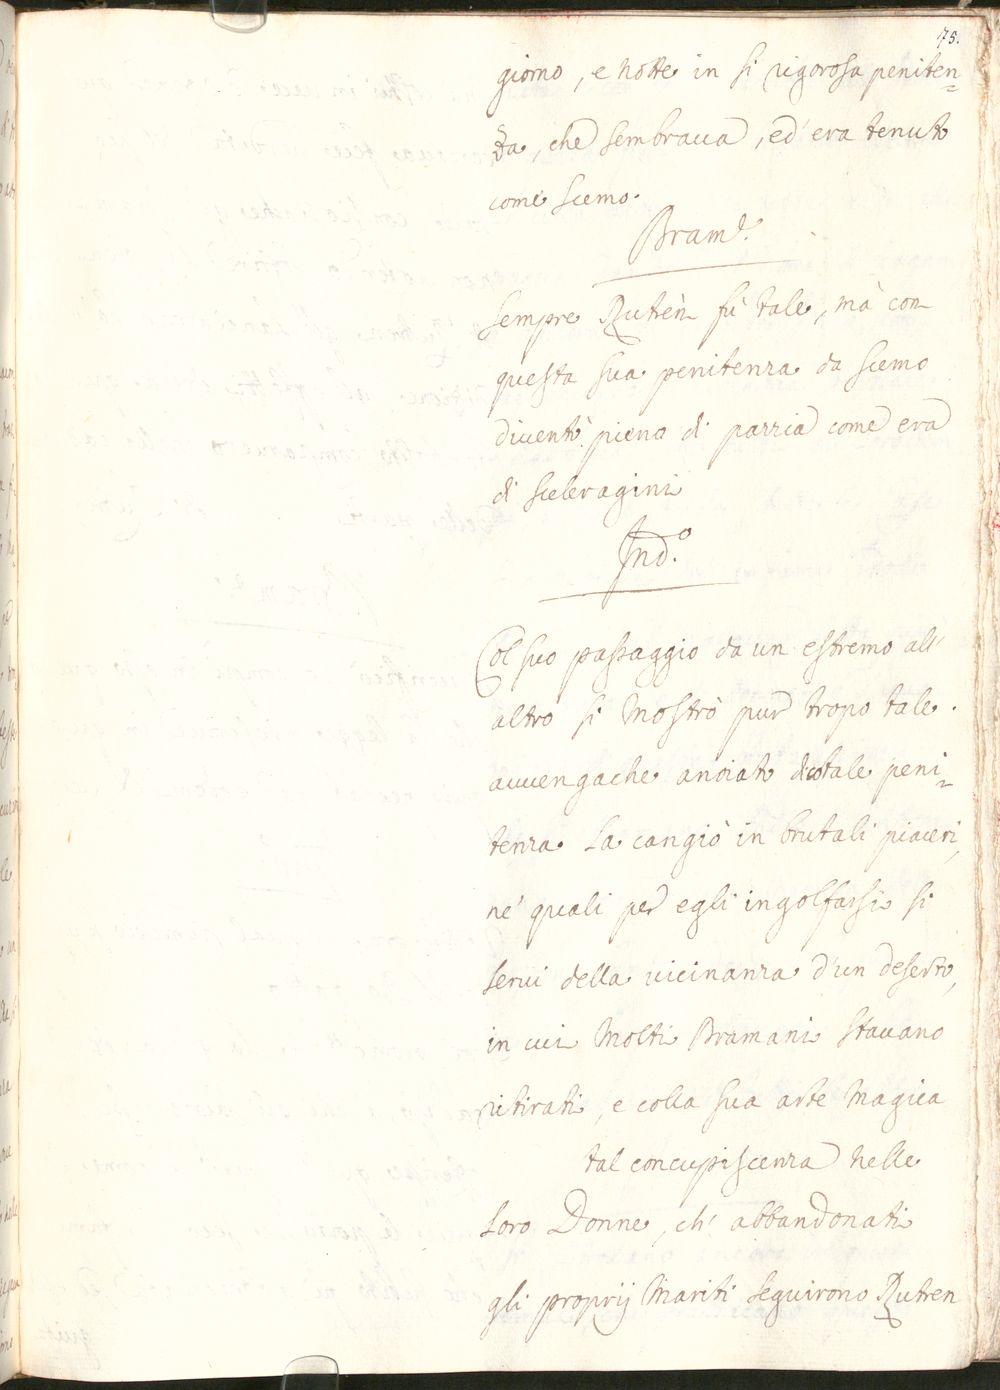 75.
giorno, e notte in si rigorosa peniten=
za, che sembraua, ed' era tenuto
come scemo.
Bram.e
Sempre Rutren fù tale, mà con
questa sua penitenza da scemo
diuentò pieno di pazzia come era
di sceleragini
Ind.o
Col suo passaggio da un estremo all'
altro si mostrò pur tropo tale.
auuengache anoiato di cotale peni=
tenza la cangiò in brutali piaceri,
ne' quali per egli ingolfarsi si
serui della uicinanza d'un deserto,
in cui molti Bramani stauano
ritirati, e colla sua arte magica
tal concupiscenza nelle
loro Donne, ch' abbandonati
gli proprij mariti seguirono Rutren